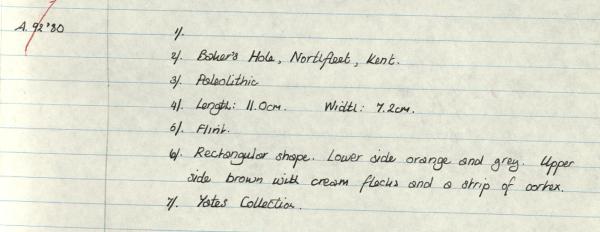 A. 92'80
1/.
2/. Baker's Hole, Northfleet, Kent.
3/. Paleolithic
4/. Length: 11.0cm. Width: 7.2cm.
5/. Flint.
6/. Rectangular shape. Lower side orange and grey. Upper
side brown with cream flecks and a strip of cortex.
7/. Yates Collection.